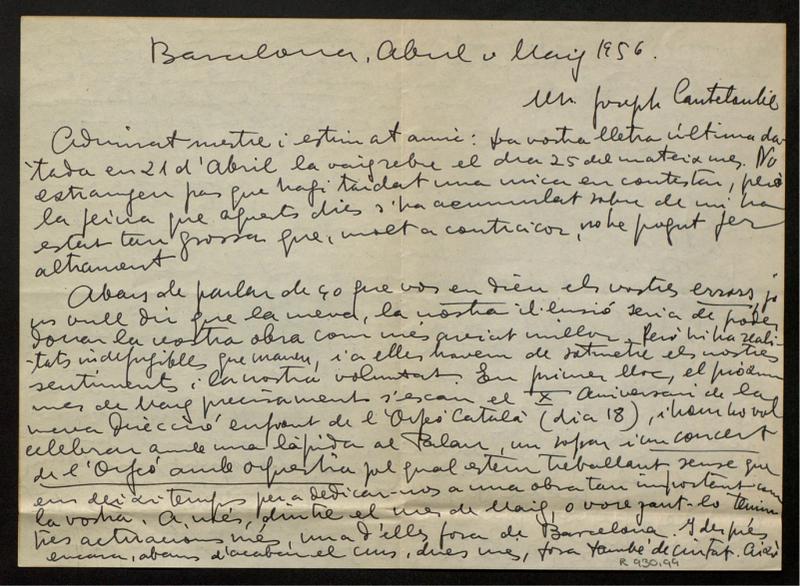 Barcelona, Abril o Maig 1956.
Mn. Joseph Canteloube
Admirat mestre i estimat amic: La vostra lletra última da-
tada en 21 d'Abril la vaig rebre el dia 25 del mateix mes. No
estrangeu pas que hagi tardat una mica en contestar, però
la feina que aquets dies s'ha acumulat sobre de mi ha
estat tan grossa que, molt a contracor, no he pogut fer
altrament
Abans de parlar de ço que vos en dieu els vostres errors, ja
us vull dir que la meva, la nostra il·lusió seria de poder
donar la vostra obra com més aviat millor. Però hi ha reali-
tats indefugibles que manen, i a elles havem de sotmetre els nostres
sentiments i la nostra voluntat. En primer lloc, el pròxim
mes de Maig precisament s'escau el X Aniversari de la
meva direcció enfront de l'Orfeó Català (dia 18), i hom ho vol
celebrar amb una làpida al Palau, un sopar i un concert
de l'Orfeó amb orquestra pel qual estem treballant sense que
ens deixi temps per a dedicar-nos a una obra tan important com
la vostra. A més, dintre el mes de Maig, o vorejant-lo tenim
tres actuacions més, una d'elles fora de Barcelona. I després
encara, abans d'acabar el curs, dues més, fora també de ciutat. Això
R 930,99